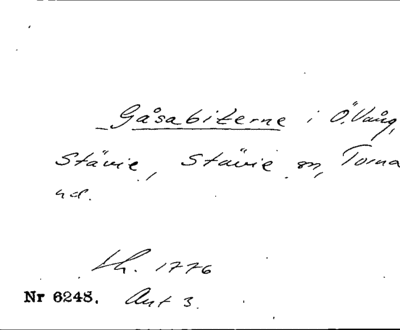 Gåsabiterne i Ö. Vång,
Stävie, Stävie sn, Torna
hd.
Lh. 1776
Nr 6248. Akt 3.